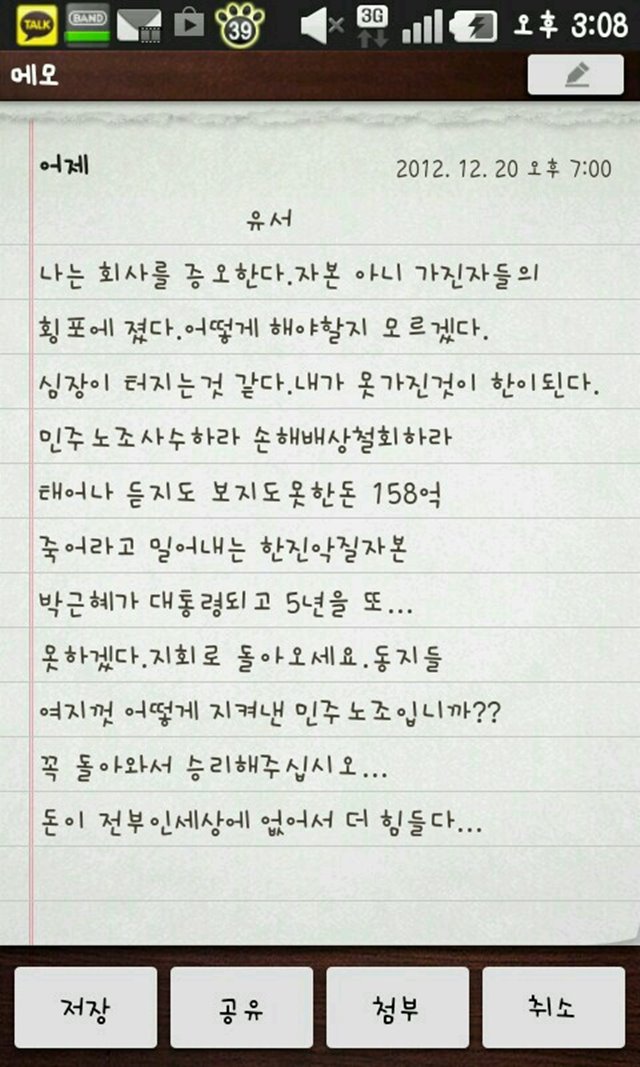 TALK BAND 39 3G 오후 3:08
메모
어제 2012. 12. 20 오후 7:00
유서
나는 회사를 증오한다.자본 아니 가진자들의
횡포에 졌다.어떻게 해야할지 모르겠다.
심장이 터지는것 같다.내가 못가진것이 한이된다.
민주노조사수하라 손해배상철회하라
태어나 듣지도 보지도못한돈 158억
죽어라고 밀어내는 한진악질자본
박근혜가 대통령되고 5년을 또...
못하겠다.지회로 돌아오세요.동지들
여지껏 어떻게 지켜낸 민주노조입니까??
꼭 돌아와서 승리해주십시오...
돈이 전부인세상에 없어서 더 힘들다...
저장 공유 첨부 취소